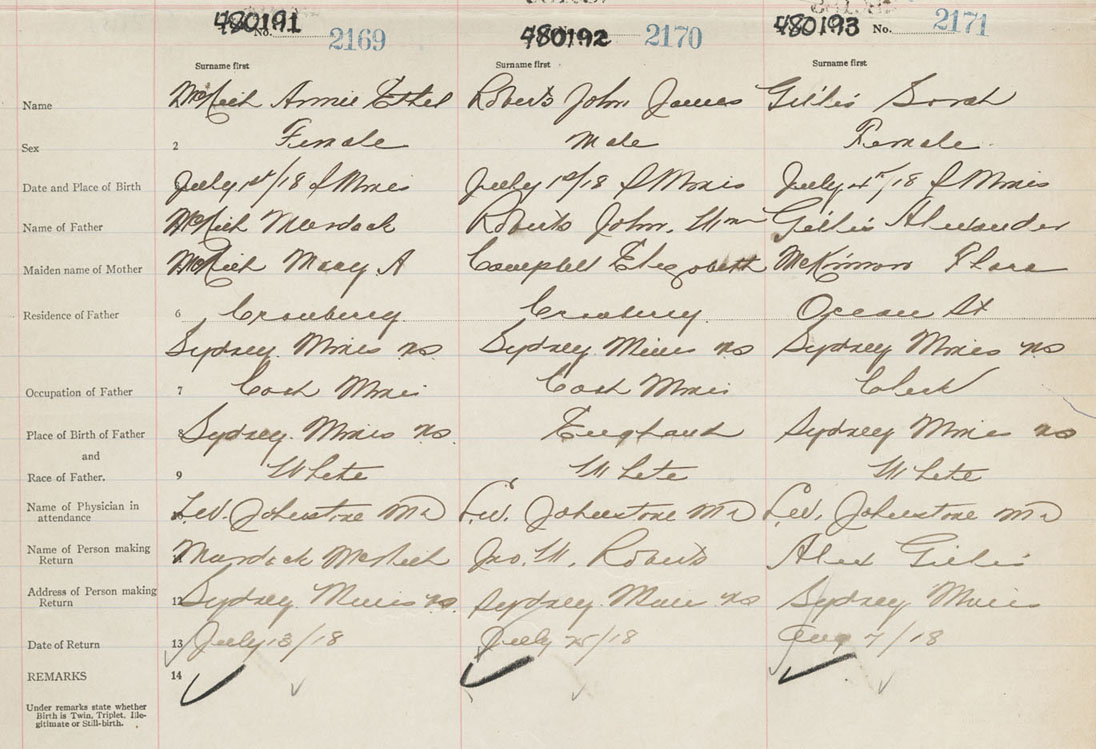 480191 480192 480193
No. 2169 2170 No. 2171
Surname first Surname first Surname first
Name Annie Ethel Roberts John James Gillis Sarah
Sex 2 Female Male Female
Date and Place of Birth July 1st/18 S Mines July 1st/18 S Mines July 4th/18 S Mines
Name of Father Murdock Roberts John. Wm Gillis Alexander
Maiden name of Mother Mary A Campbell Elizabeth McKinnon Flora
Residence of Father 6 Cranberry Cranberry Ocean St
Sydney Mines NS Sydney Mines NS Sydney Mines NS
Occupation of Father 7 Coal Clerk
Place of Birth of Father 8 Sydney Mines NS England Sydney Mines NS
and
Race of Father. 9 White White White
Name of Physician in
attendance L.W. Johnstone MD L.W. Johnstone MD L.W. Johnstone MD
Name of Person making
Return Murdock Jno. W. Roberts Alex Gillis
Address of Person making
Return 12 Sydney Mines NS Sydney Mines NS Sydney Mines
Date of Return 13 July 13/18 July 25/18 Aug 7/18
REMARKS 14
Under remarks state whether
Birth is Twin, Triplet, Ille-
gitimate or Still-birth.